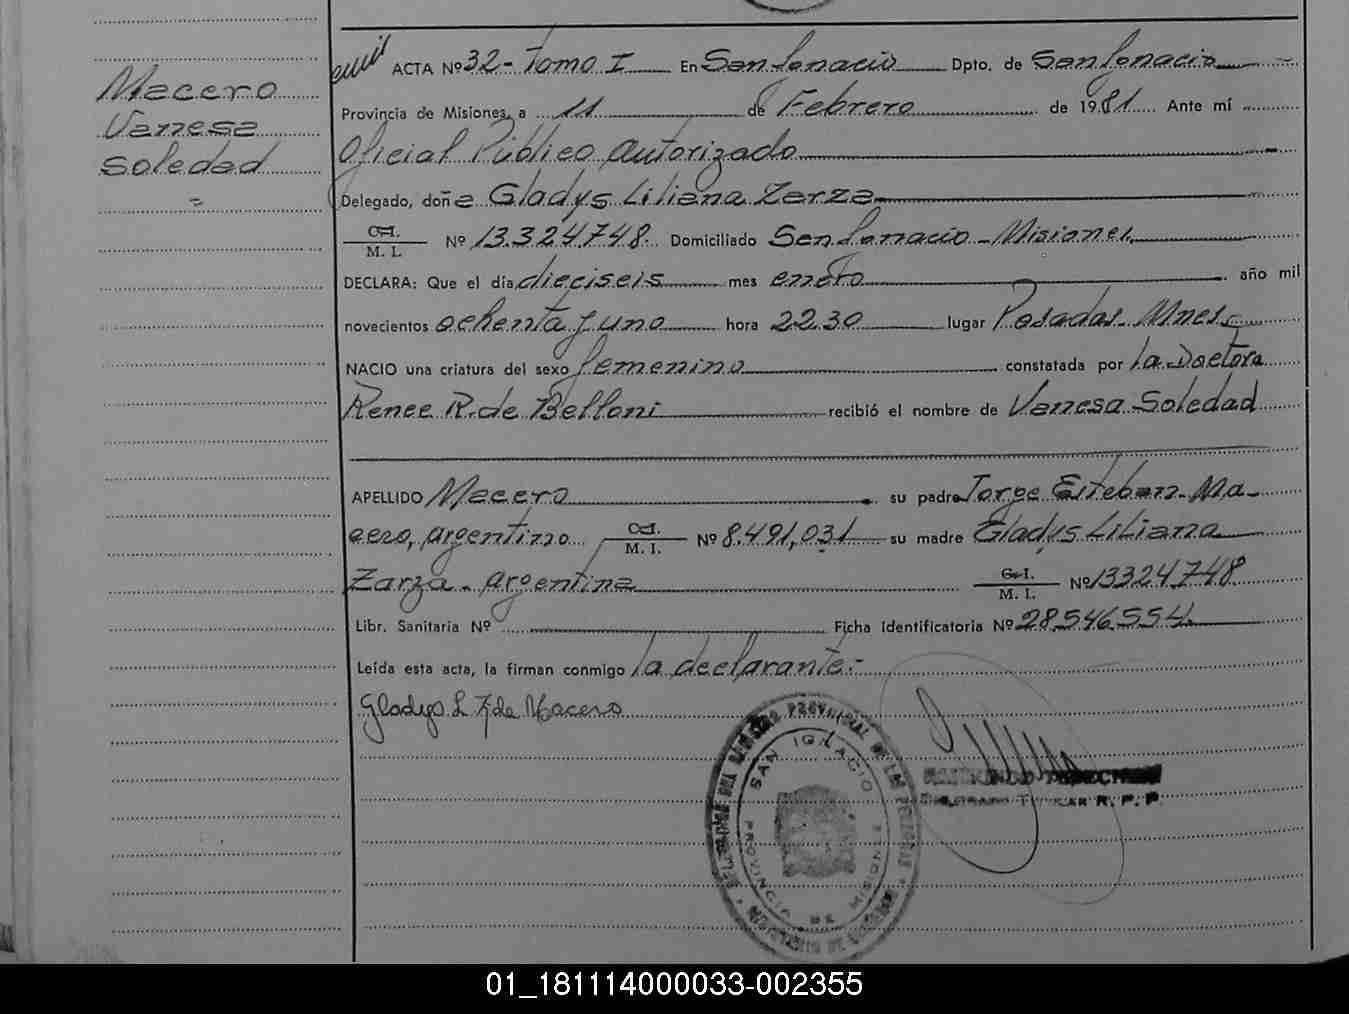 Macero
Vanesa
Soledad
ACTA Nº 32 - Tomo I En San Ignacio Dpto. de San Ignacio
Provincia de Misiones, a 11 de Febrero de 1981 Ante mí
Oficial Público Autorizado
Delegado, doña Gladys Liliana Zarza
C. I.
M. I. Nº 13.324748. Domiciliado San Ignacio - Misiones
DECLARA: Que el día dieciseis mes enero año mil
novecientos ochenta y uno hora 22.30 lugar Posadas - Mnes.
NACIO una criatura del sexo femenino constatada por la Doctora
Renee R. de Belloni recibió el nombre de Vanesa Soledad
APELLIDO Macero su padre Jorge Esteban Ma-
cero, argentino C. I. M. I. Nº 8.491,031 su madre Gladys Liliana
Zarza - argentina C. I. M. I. Nº 13324748
Libr. Sanitaria Nº Ficha Identificatoria Nº 28.546.554.
Leída esta acta, la firman conmigo la declarante.-
Gladys L Z de Macero
PROVINCIAL DE LAS PERSONAS
SAN IGNACIO
PROVINCIA DE MISIONES
R. P. P.
01_181114000033-002355